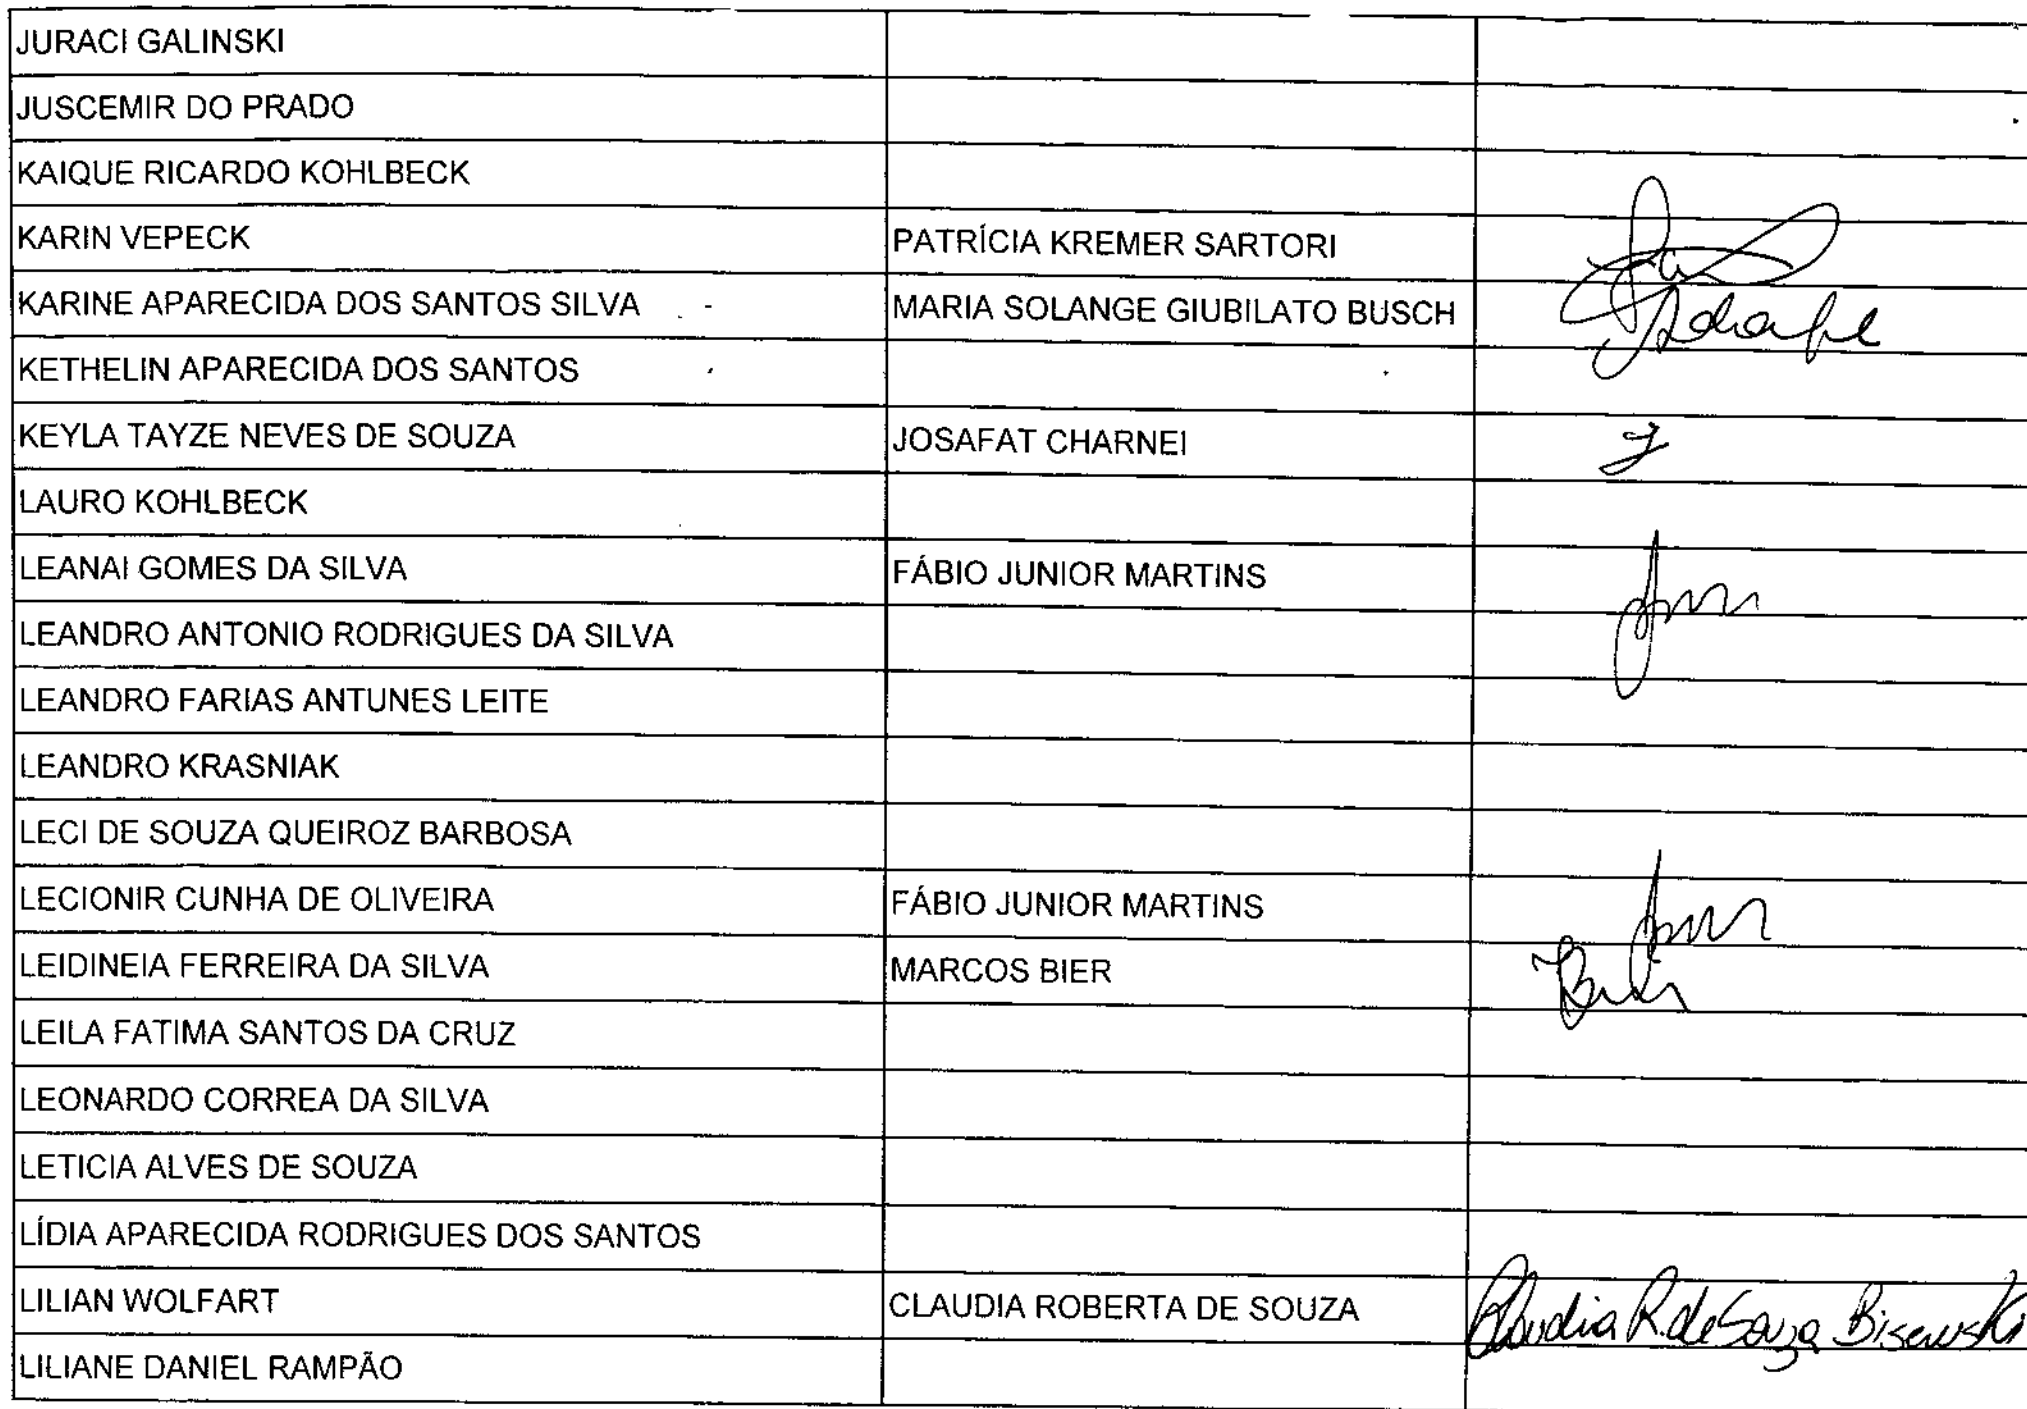 JURACI GALINSKI
JUSCEMIR DO PRADO
KAIQUE RICARDO KOHLBECK
KARIN VEPECK PATRÍCIA KREMER SARTORI
KARINE APARECIDA DOS SANTOS SILVA MARIA SOLANGE GIUBILATO BUSCH
KETHELIN APARECIDA DOS SANTOS
KEYLA TAYZE NEVES DE SOUZA JOSAFAT CHARNEI
LAURO KOHLBECK
LEANAI GOMES DA SILVA FÁBIO JUNIOR MARTINS
LEANDRO ANTONIO RODRIGUES DA SILVA
LEANDRO FARIAS ANTUNES LEITE
LEANDRO KRASNIAK
LECI DE SOUZA QUEIROZ BARBOSA
LECIONIR CUNHA DE OLIVEIRA FÁBIO JUNIOR MARTINS
LEIDINEIA FERREIRA DA SILVA MARCOS BIER
LEILA FATIMA SANTOS DA CRUZ
LEONARDO CORREA DA SILVA
LETICIA ALVES DE SOUZA
LÍDIA APARECIDA RODRIGUES DOS SANTOS
LILIAN WOLFART CLAUDIA ROBERTA DE SOUZA Claudia R. de Souza Bisewski
LILIANE DANIEL RAMPÃO